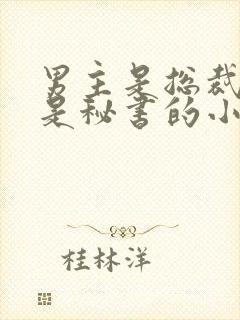 男主是总裁
是秘书的小
桂林洋